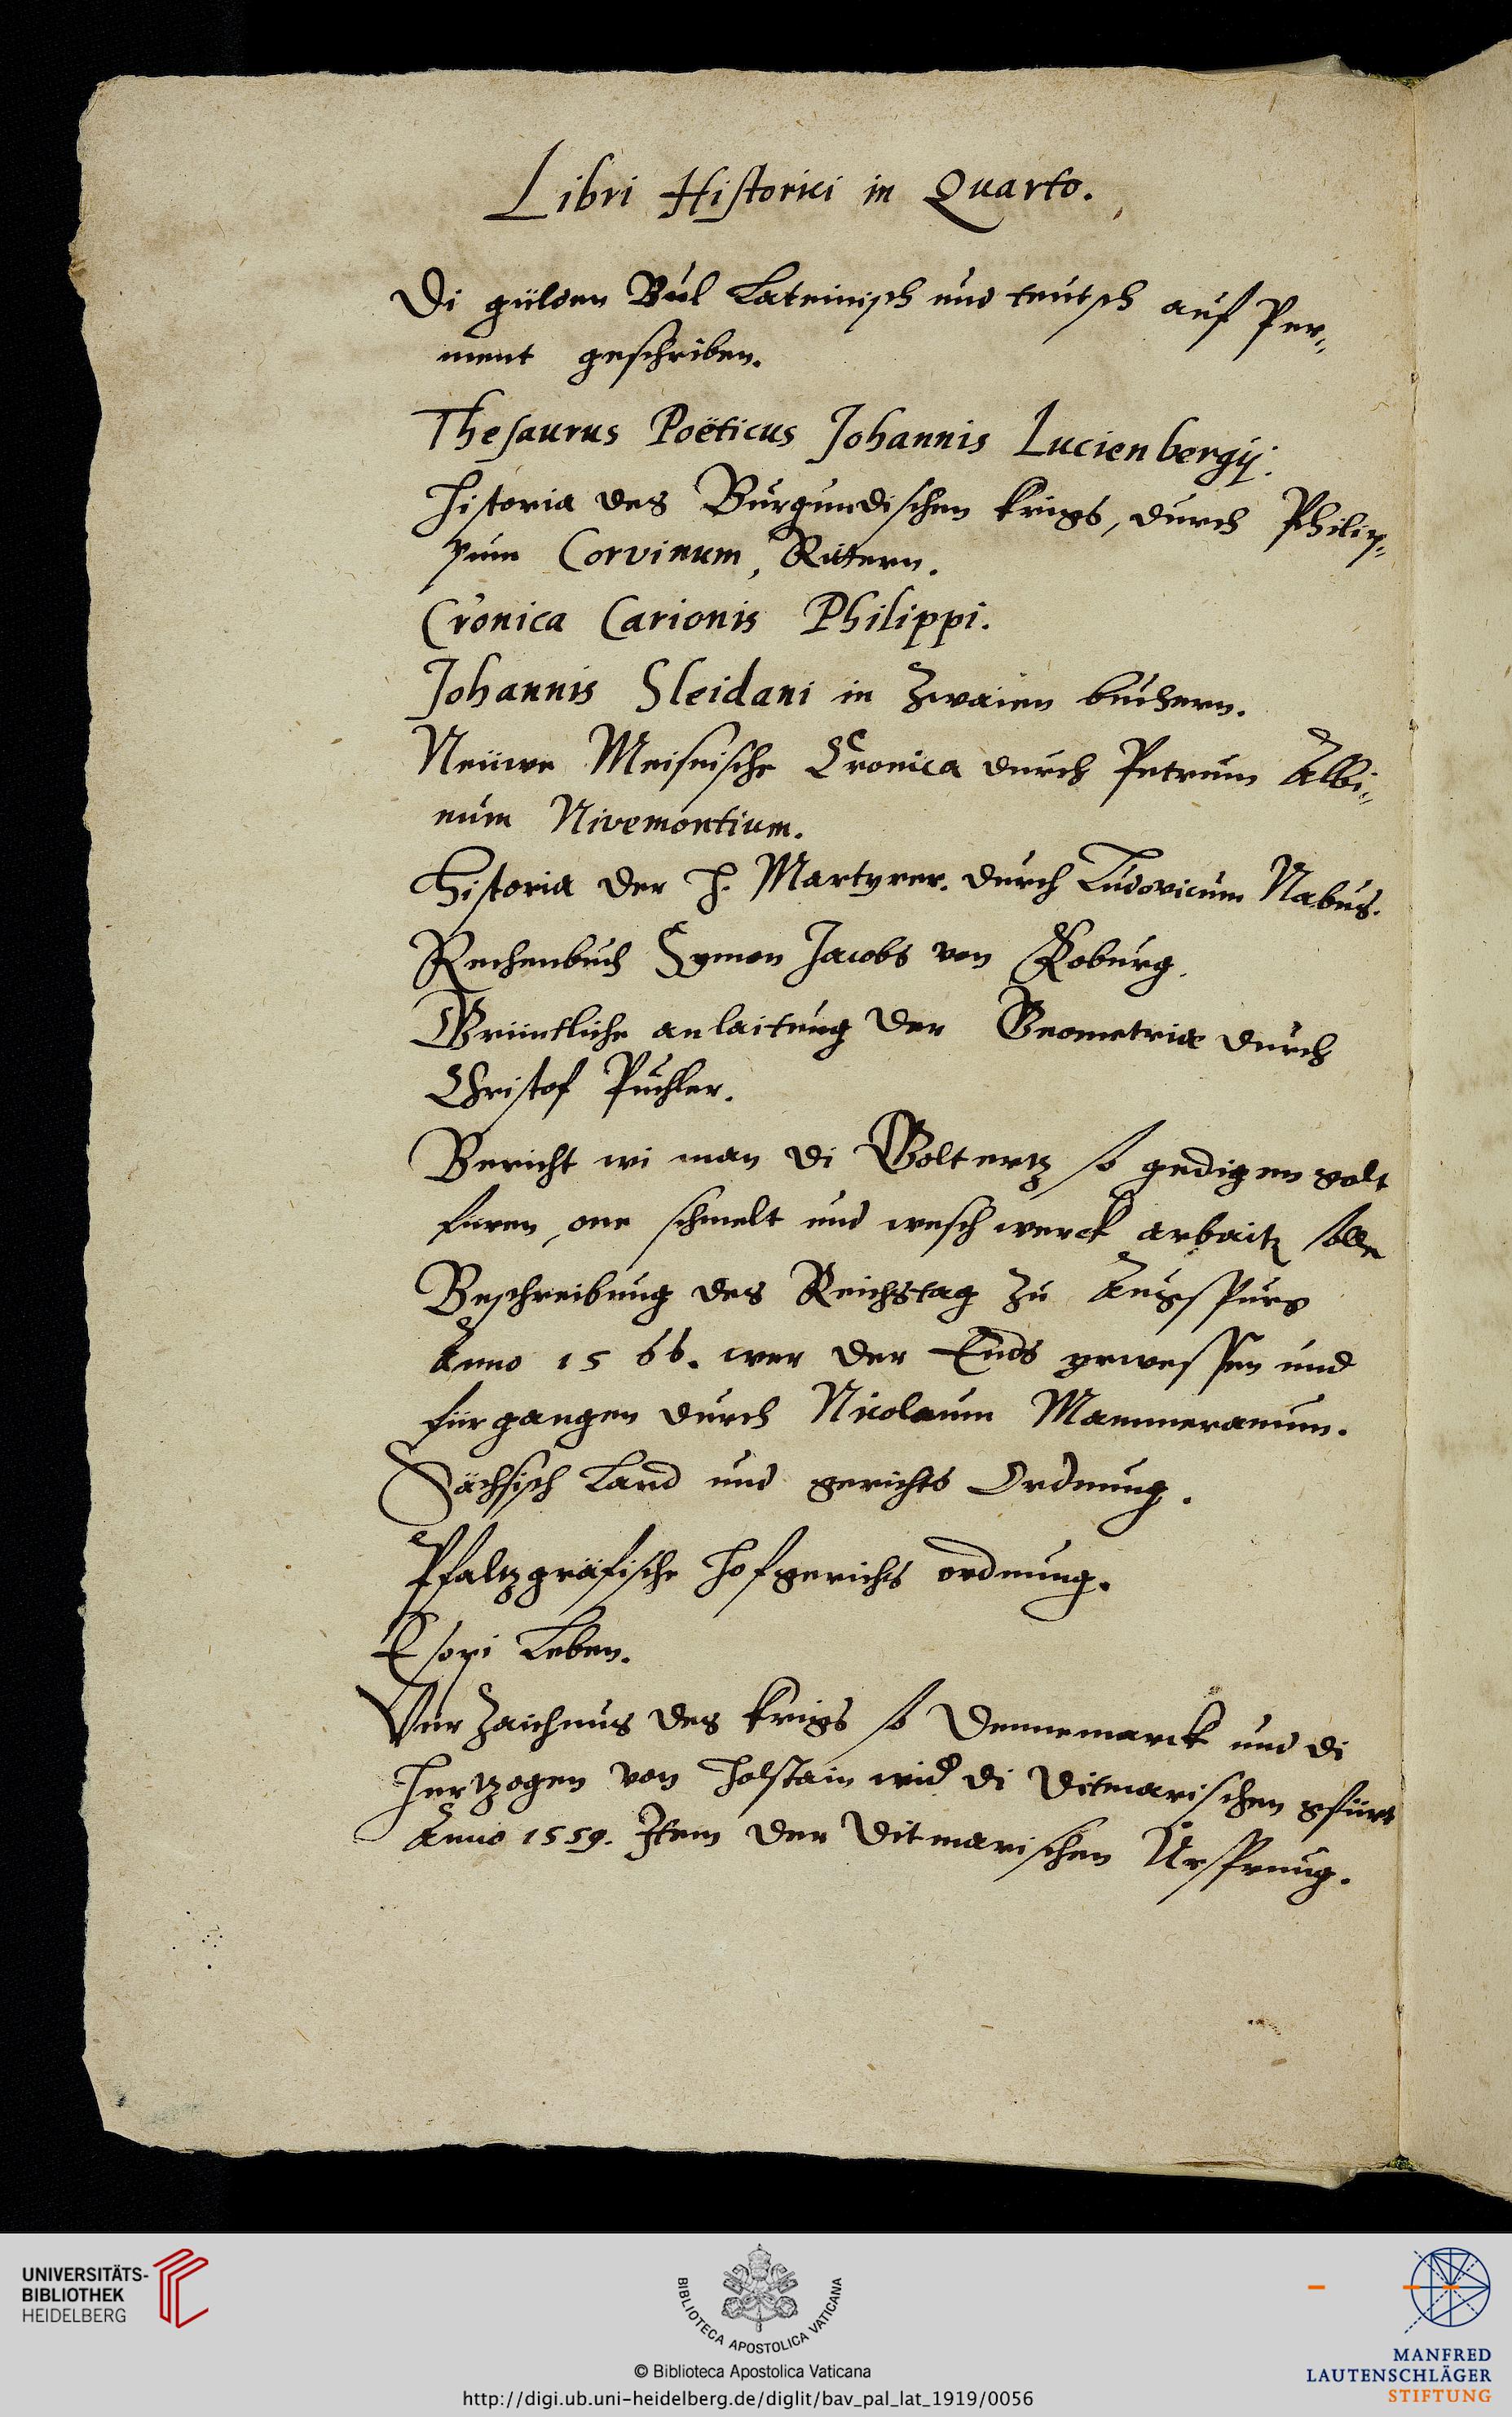 Libri Historici in Quarto.
Di gülden Bul Lateinisch und teutsch auf Per-
ment geschriben.
Thesaurus Poëticus Johannis Lucienbergij.
Historia des Burgundischen krigs, durch Philip-
pum Corvinum, Rittern.
Cronica Carionis Philippi.
Johannis Sleidani in zwaien buchern.
Neüwe Meisnische Cronica durch Petrum Albi-
num Nivemontium.
Historia der H. Martyrer. durch Ludovicum Rabus.
Rechenbuch Symon Jacobs von Koburg.
Grüntliche anlaitung der Geometria durch
Christof Puchler.
Bericht wi man di Goltertz so gedigen golt
füren, one schmelt und wesch werck arbaitz solle
Beschreibung des Reichstag zu Augspurg
Anno 1566. wer der Ends gewessen und
fürgangen durch Nicolaum Mammeranum.
Sächsisch Land und gerichts Ordnung.
Pfaltzgräfische Hofgerichts ordnung.
Esopi Leben.
Verzaichnus des krigs so Dennemarck und di
Hertzogen von Holstain wid di Ditmarischen gfürt
Anno 1559. Item der Ditmarischen Ursprung.
UNIVERSITÄTS-
BIBLIOTHEK
HEIDELBERG
BIBLIOTECA APOSTOLICA VATICANA
© Biblioteca Apostolica Vaticana
http://digi.ub.uni-heidelberg.de/diglit/bav_pal_lat_1919/0056
MANFRED
LAUTENSCHLÄGER
STIFTUNG